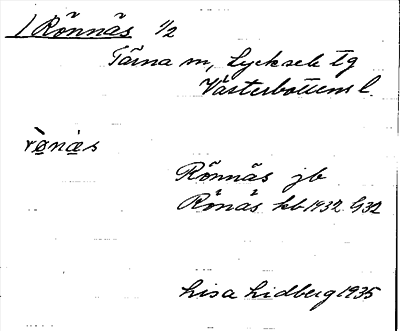 /Rönnäs ½
Tärna m, Lycksele tg
Västerbottens l.
Rönnäs jb
Rönäs kb 1932 G32
Lisa Lidberg 1935